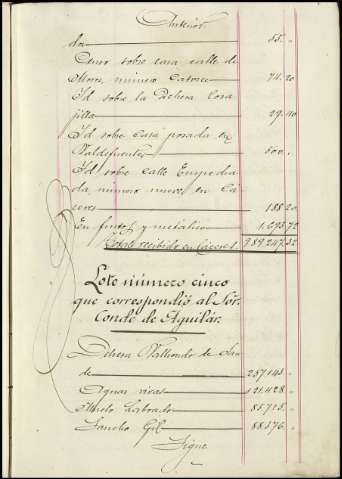 Anterior
dro 55.-
Censo sobre casa calle de
Moros, número catorce 74.20
Yd sobre la Dehesa Cora
jilla 29.40
Yd sobre Casa posada en
Valdefuentes 500.-
Yd sobre calle Empedra
da número nueve, en Cá
ceres 188.20
En fincas y metálico 1.093.72
Total recibido en Cáceres 989.247.52
Lote número cinco
que correspondió al Sór.
Conde de Aguilár.
Dehesa Valhondo de
de 257.143.-
Aguas vivas 121.428.-
Suelo Labrado 85.715.-
Sancho Gil 88.576.-
Sigue